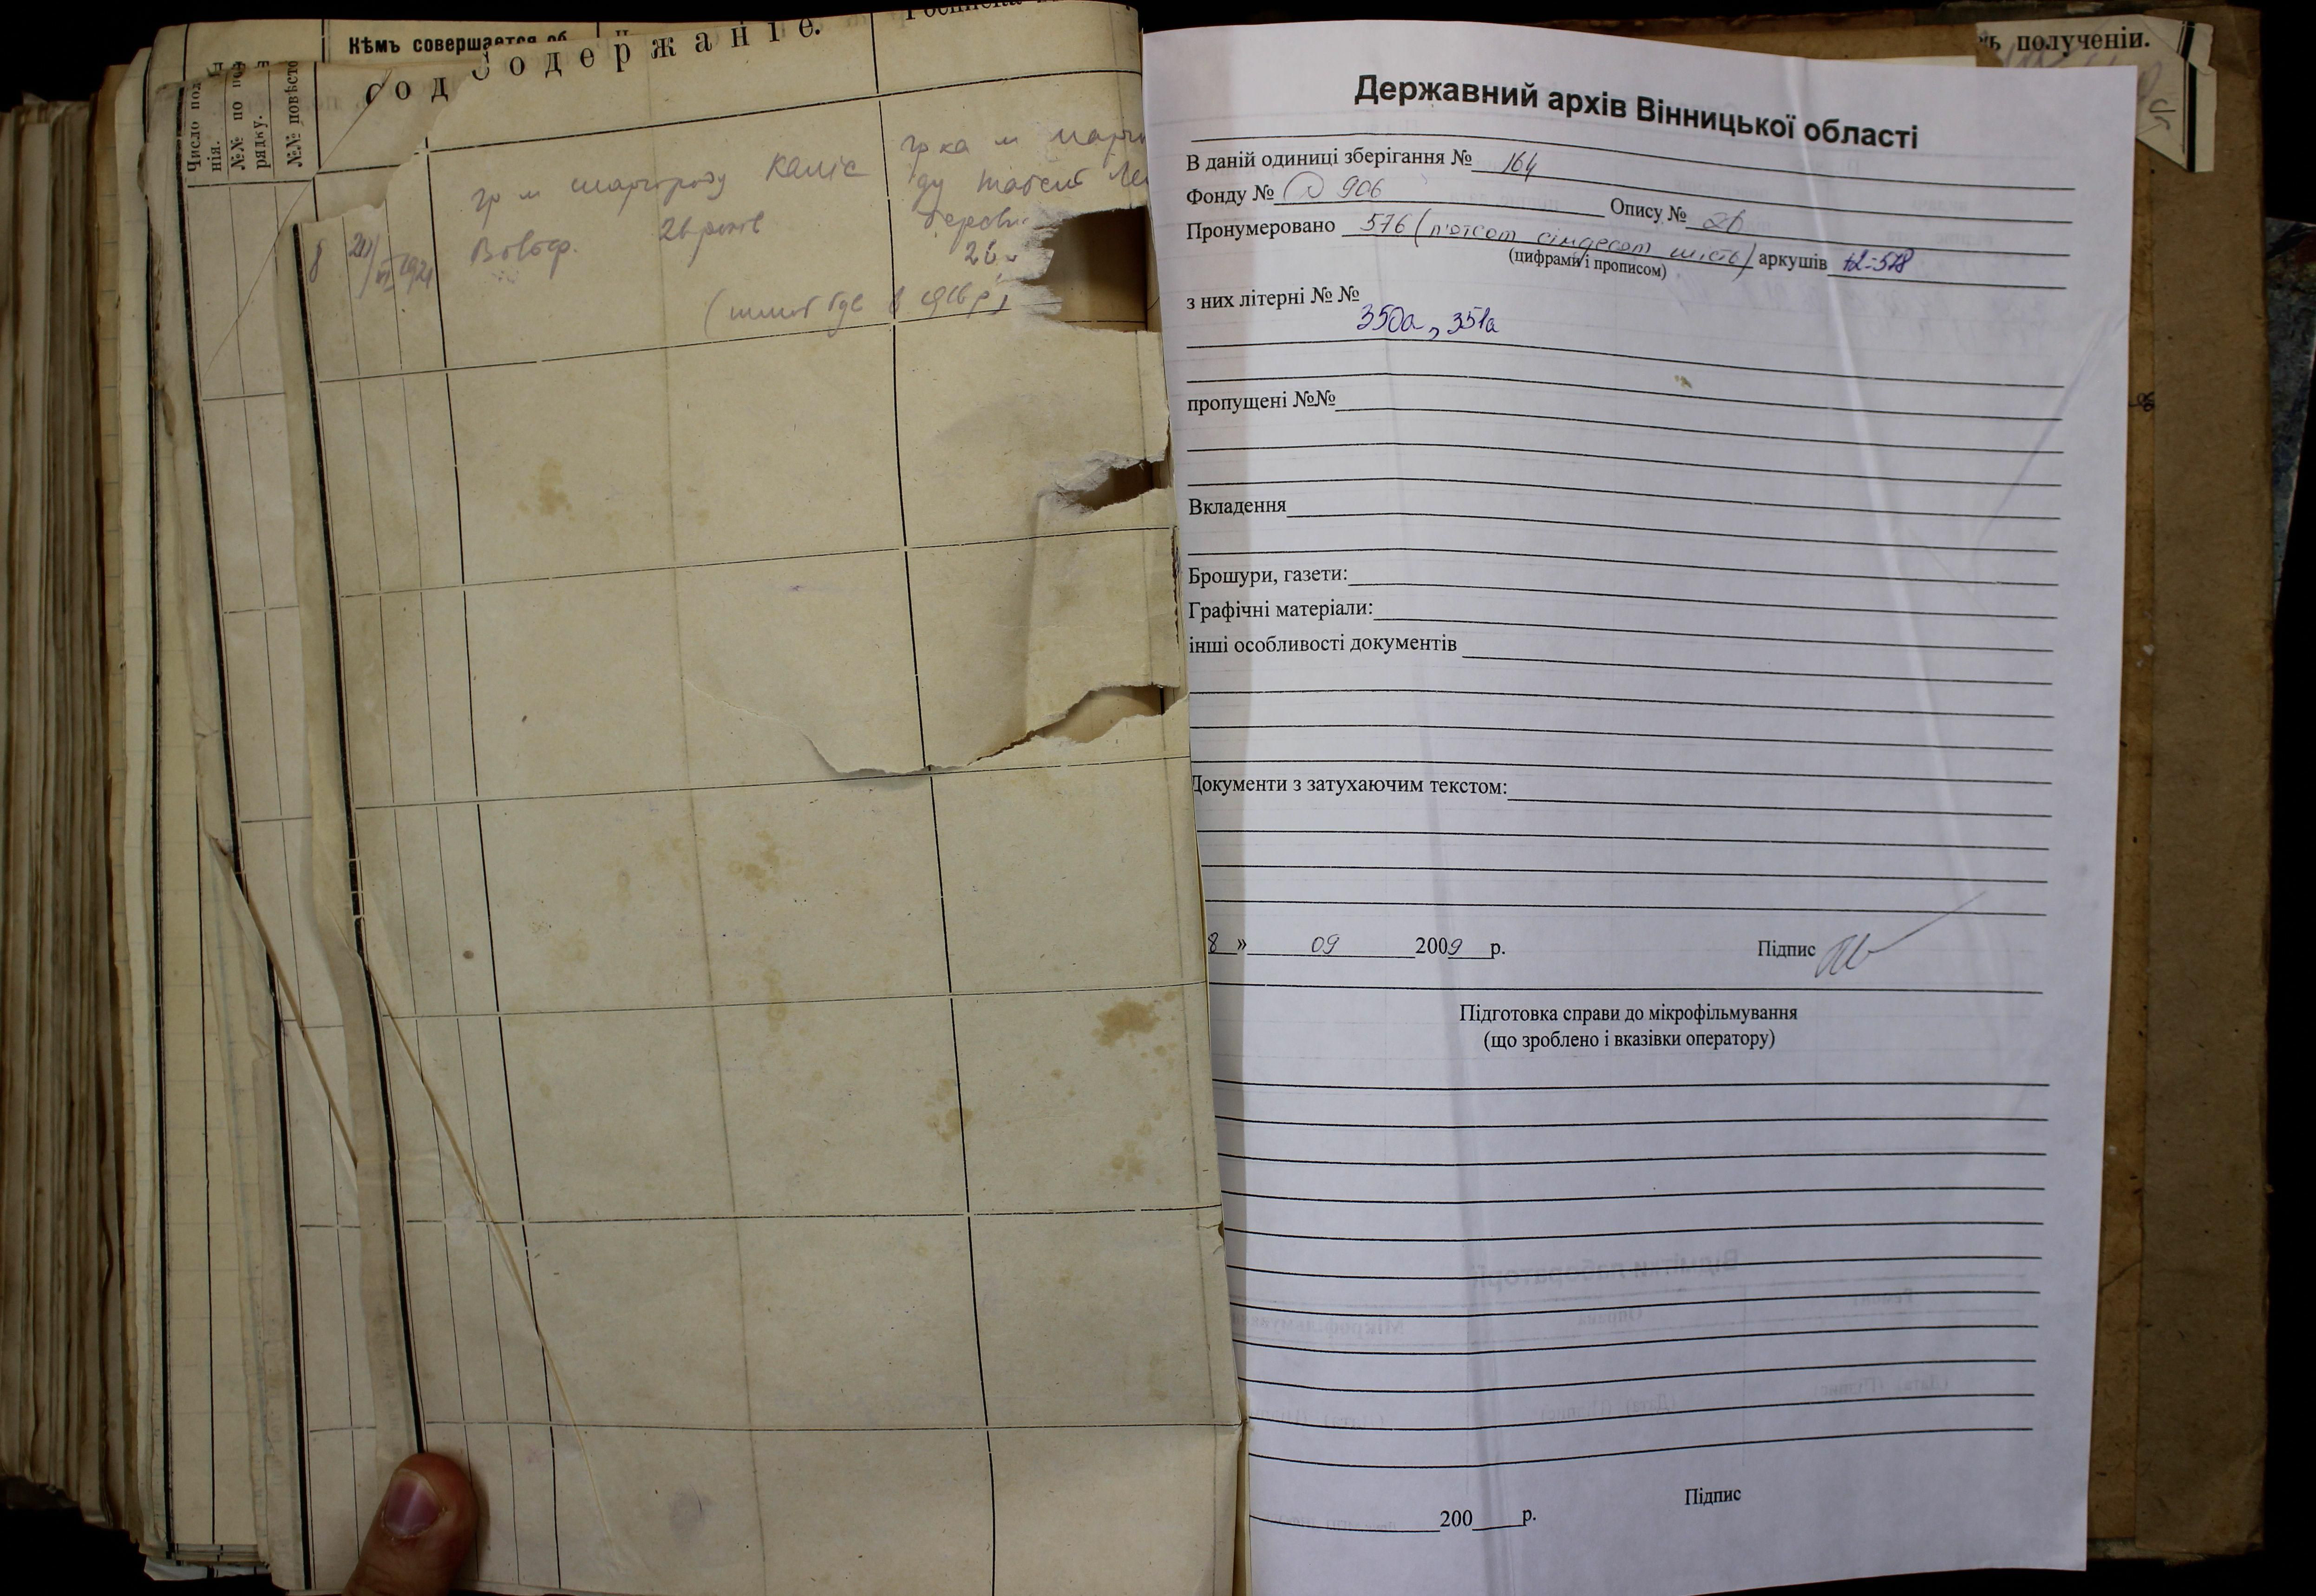 Кѣмъ совершается об
Содержаніе.
Сод
Число пол
нія.
№№ по по
рядку.
№№ повѣсто
гр м Шаргороду Каліс
Вольф. 26 років
гр ка м Шарго
ду
26
8 20/VI 1921
ъ полученіи.
Державний архів Вінницької області
В даній одиниці зберігання № 164
Фонду № Д 906 Опису № 2в
Пронумеровано 576 (п'ятсот сімдесят шість) аркушів +2=578
(цифрами і прописом)
з них літерні № №
350а, 351а
пропущені №№
Вкладення
Брошури, газети:
Графічні матеріали:
інші особливості документів
Документи з затухаючим текстом:
8 » 09 2009 р. Підпис
Підготовка справи до мікрофільмування
(що зроблено і вказівки оператору)
Підпис
200 р.